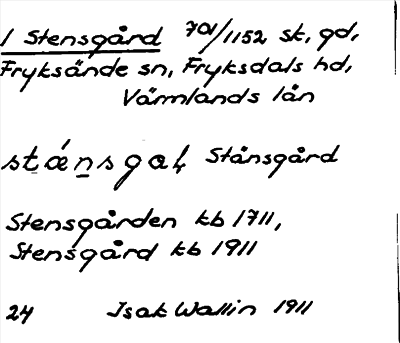 1 Stensgård 701/1152 sk, gd,
Fryksände sn, Fryksdals hd,
Värmlands län
Stånsgård
Stensgården kb 1711,
Stensgård kb 1911
24 Isak Wallin 1911